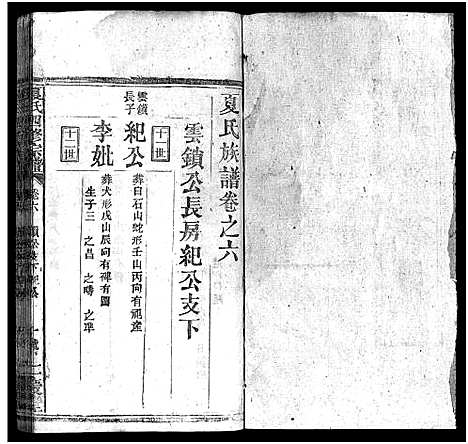 夏氏族譜卷之六
雲鎖公長房紀公支下
雲鎖長子
十一世
紀公
葬白石山蛇形壬山丙向有祀產
十一世
李妣
葬犬形戌山辰向有碑有圖
生子三 之昌 之疇 之準
夏氏四修宗譜
卷六